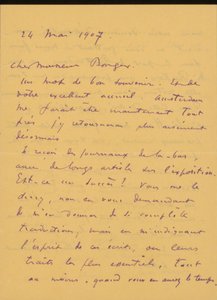 24 Mai 1907
Cher Monsieur Bonger.
Un mot de bon souvenir. Et de
votre excellent accueil. Amsterdam
me paraît être maintenant tout
près. J'y retournerai plus aisément
désormais
Je reçois des journaux de là-bas,
avec de longs articles sur l'exposition.
Est-ce un succès? Vous me le
direz, non en vous demandant
de m'en donner de si complète
traduction, mais en m'indiquant
l'esprit de ces écrits, ou leurs
traits les plus essentiels, tout
au moins, quand vous en aurez le temps